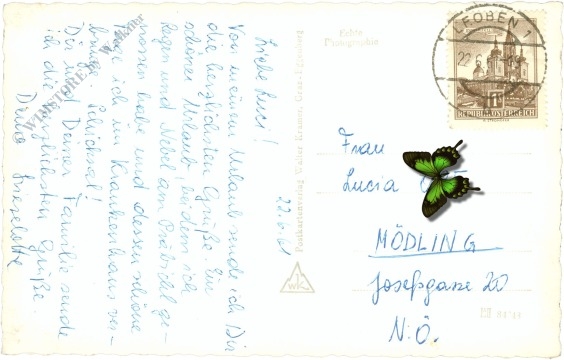 22.6.61
Liebe Luci!
Von meinem Urlaub sende ich Dir
die herzlichsten Grüße. Ein
schöner Urlaub, indem ich
Regen und Nebel am Präbichl ge-
nossen habe und dessen schöne
Tage ich im Krankenhaus ver-
bringe. Schicksal!
Dir und Deiner Familie sende
ich die herzlichsten Grüße.
Deine Lieselotte
WIMSTORE
Postkartenverlag Walter Kramer, Graz-Eggenberg
Echte
Photographie
WK
LEOBEN 1
REPUBLIK ÖSTERREICH
Frau
Lucia
MÖDLING
Josefsgasse 20
N.Ö.